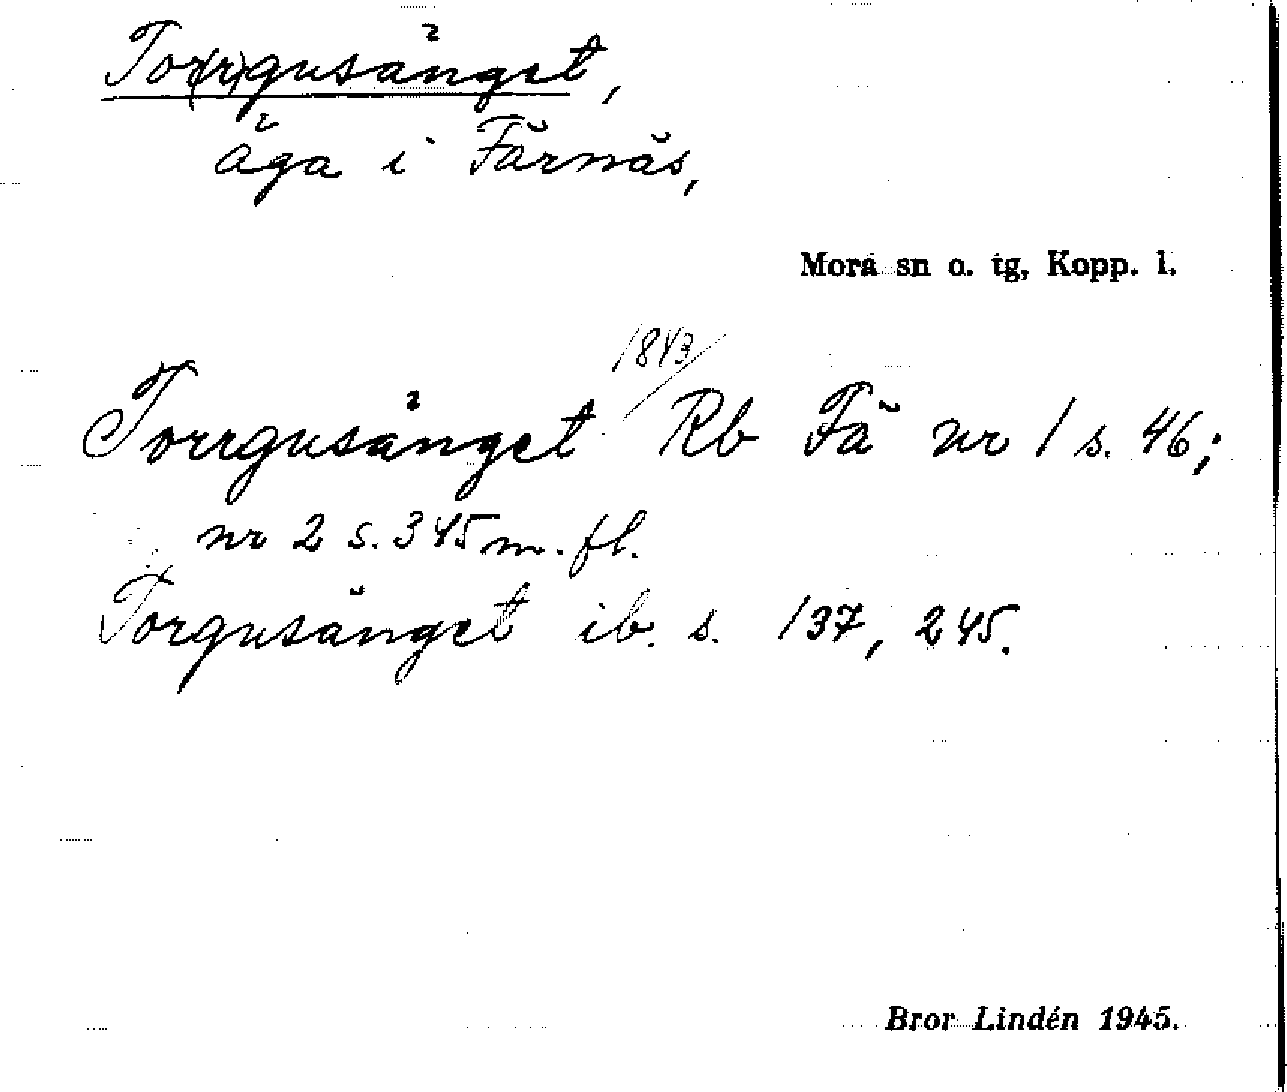 Tor(r)gusänget,
äga i Färnäs,
Mora sn o. tg, Kopp. l.
1843
Torrgusänget Rb Fä nr 1 s. 46;
nr 2 s. 345 m. fl.
Torgusänget ib. s. 137, 245.
Bror Lindén 1945.